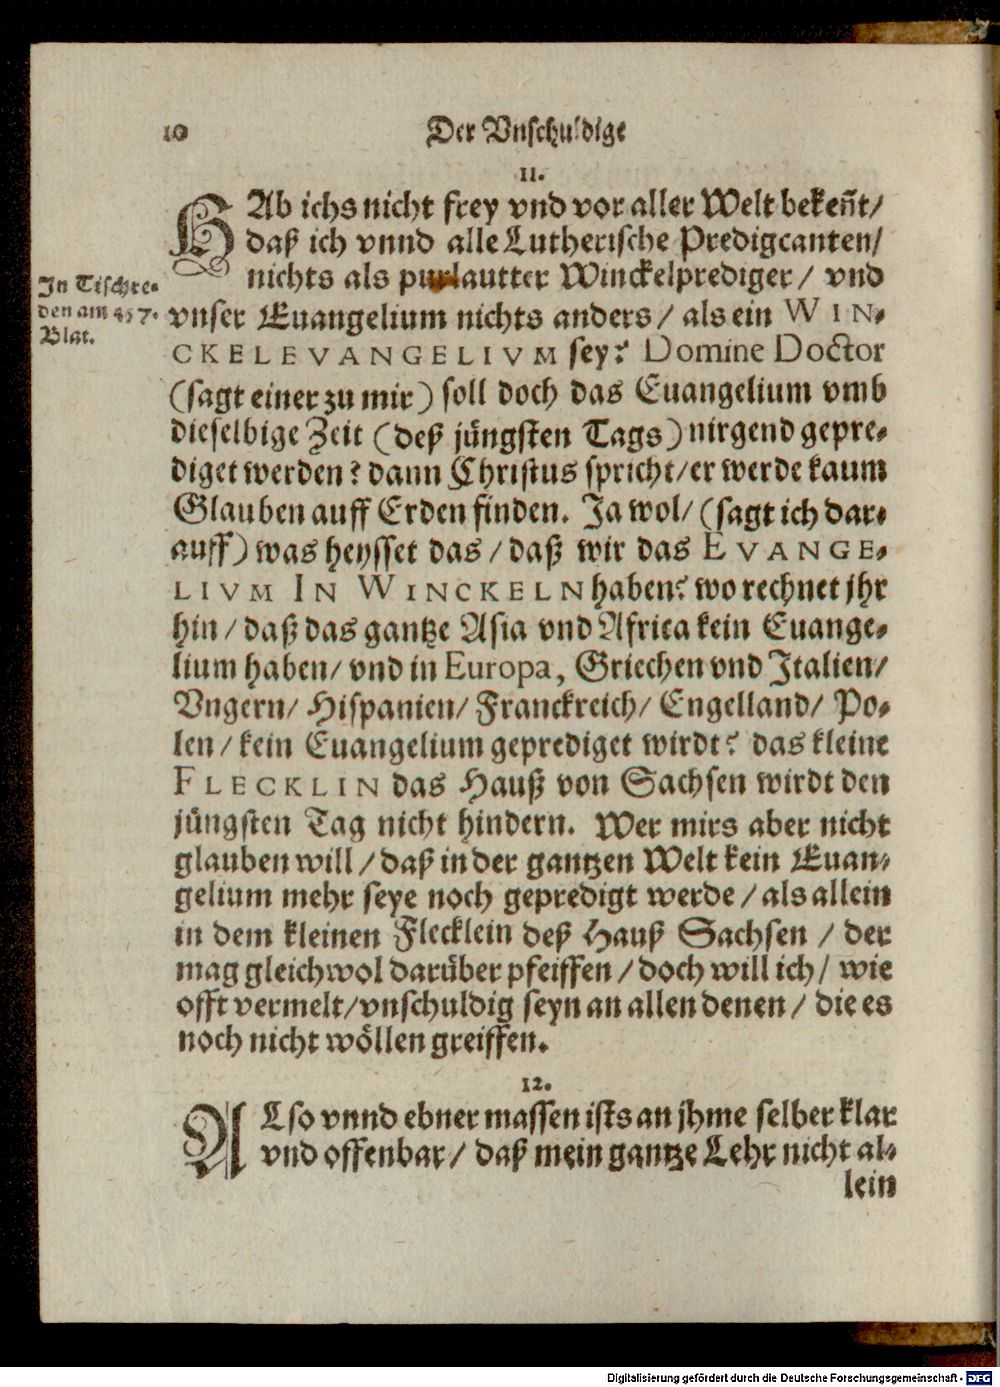 10 Der Vnschuldige
11.
HAb ichs nicht frey vnd vor aller Welt bekeñt/
daß ich vnnd alle Lutherische Predigcanten/
nichts als lautter Winckelprediger/ vnd
In Tischre-
den am 457.
Blat.
vnser Euangelium nichts anders/ als ein WIN-
CKELEVANGELIVM sey? Domine Doctor
(sagt einer zu mir) soll doch das Euangelium vmb
dieselbige Zeit (deß jüngsten Tags) nirgend gepre-
diget werden? dann Christus spricht/ er werde kaum
Glauben auff Erden finden. Ja wol/ (sagt ich dar-
auff) was heysset das/ daß wir das EVANGE-
LIVM IN WINCKELN haben? wo rechnet jhr
hin/ daß das gantze Asia vnd Africa kein Euange-
lium haben/ vnd in Europa, Griechen vnd Italien/
Vngern/ Hispanien/ Franckreich/ Engelland/ Po-
len/ kein Euangelium geprediget wirdt? das kleine
FLECKLIN das Hauß von Sachsen wirdt den
jüngsten Tag nicht hindern. Wer mirs aber nicht
glauben will/ daß in der gantzen Welt kein Euan-
gelium mehr seye noch gepredigt werde/ als allein
in dem kleinen Flecklein deß Hauß Sachsen/ der
mag gleichwol darüber pfeiffen/ doch will ich/ wie
offt vermelt/ vnschuldig seyn an allen denen/ die es
noch nicht wöllen greiffen.
12.
ALso vnnd ebner massen ists an jhme selber klar
vnd offenbar/ daß mein gantze Lehr nicht al-
lein
Digitalisierung gefördert durch die Deutsche Forschungsgemeinschaft - DFG